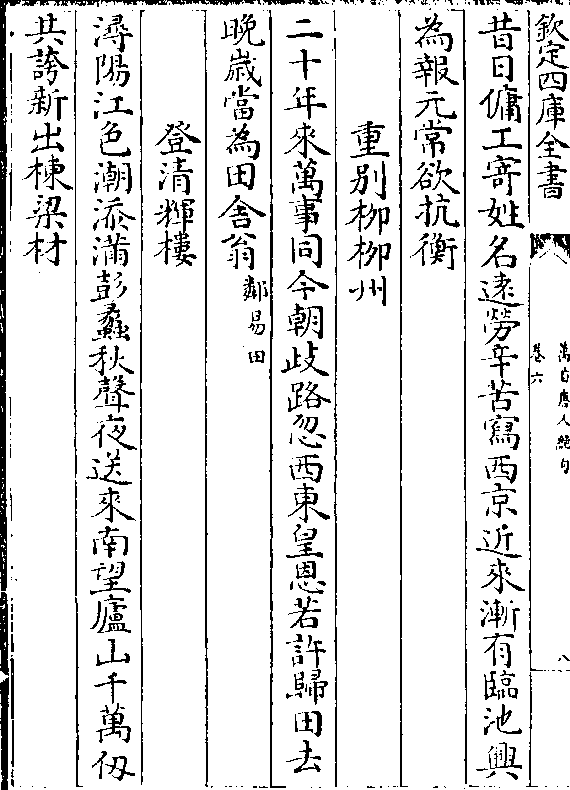 欽定四庫全書
萬首唐人絶句
卷六
八
昔日傭工寄姓名逺勞辛苦寫西京近來漸有臨池興
為報元常欲抗衡
重别栁栁州
二十年來萬事同今朝歧路忽西東皇恩若許歸田去
晚嵗當為田舍翁鄰易田
登清輝樓
潯陽江色潮添滿彭蠡秋聲夜送來南望廬山千萬仭
共誇新出棟梁材